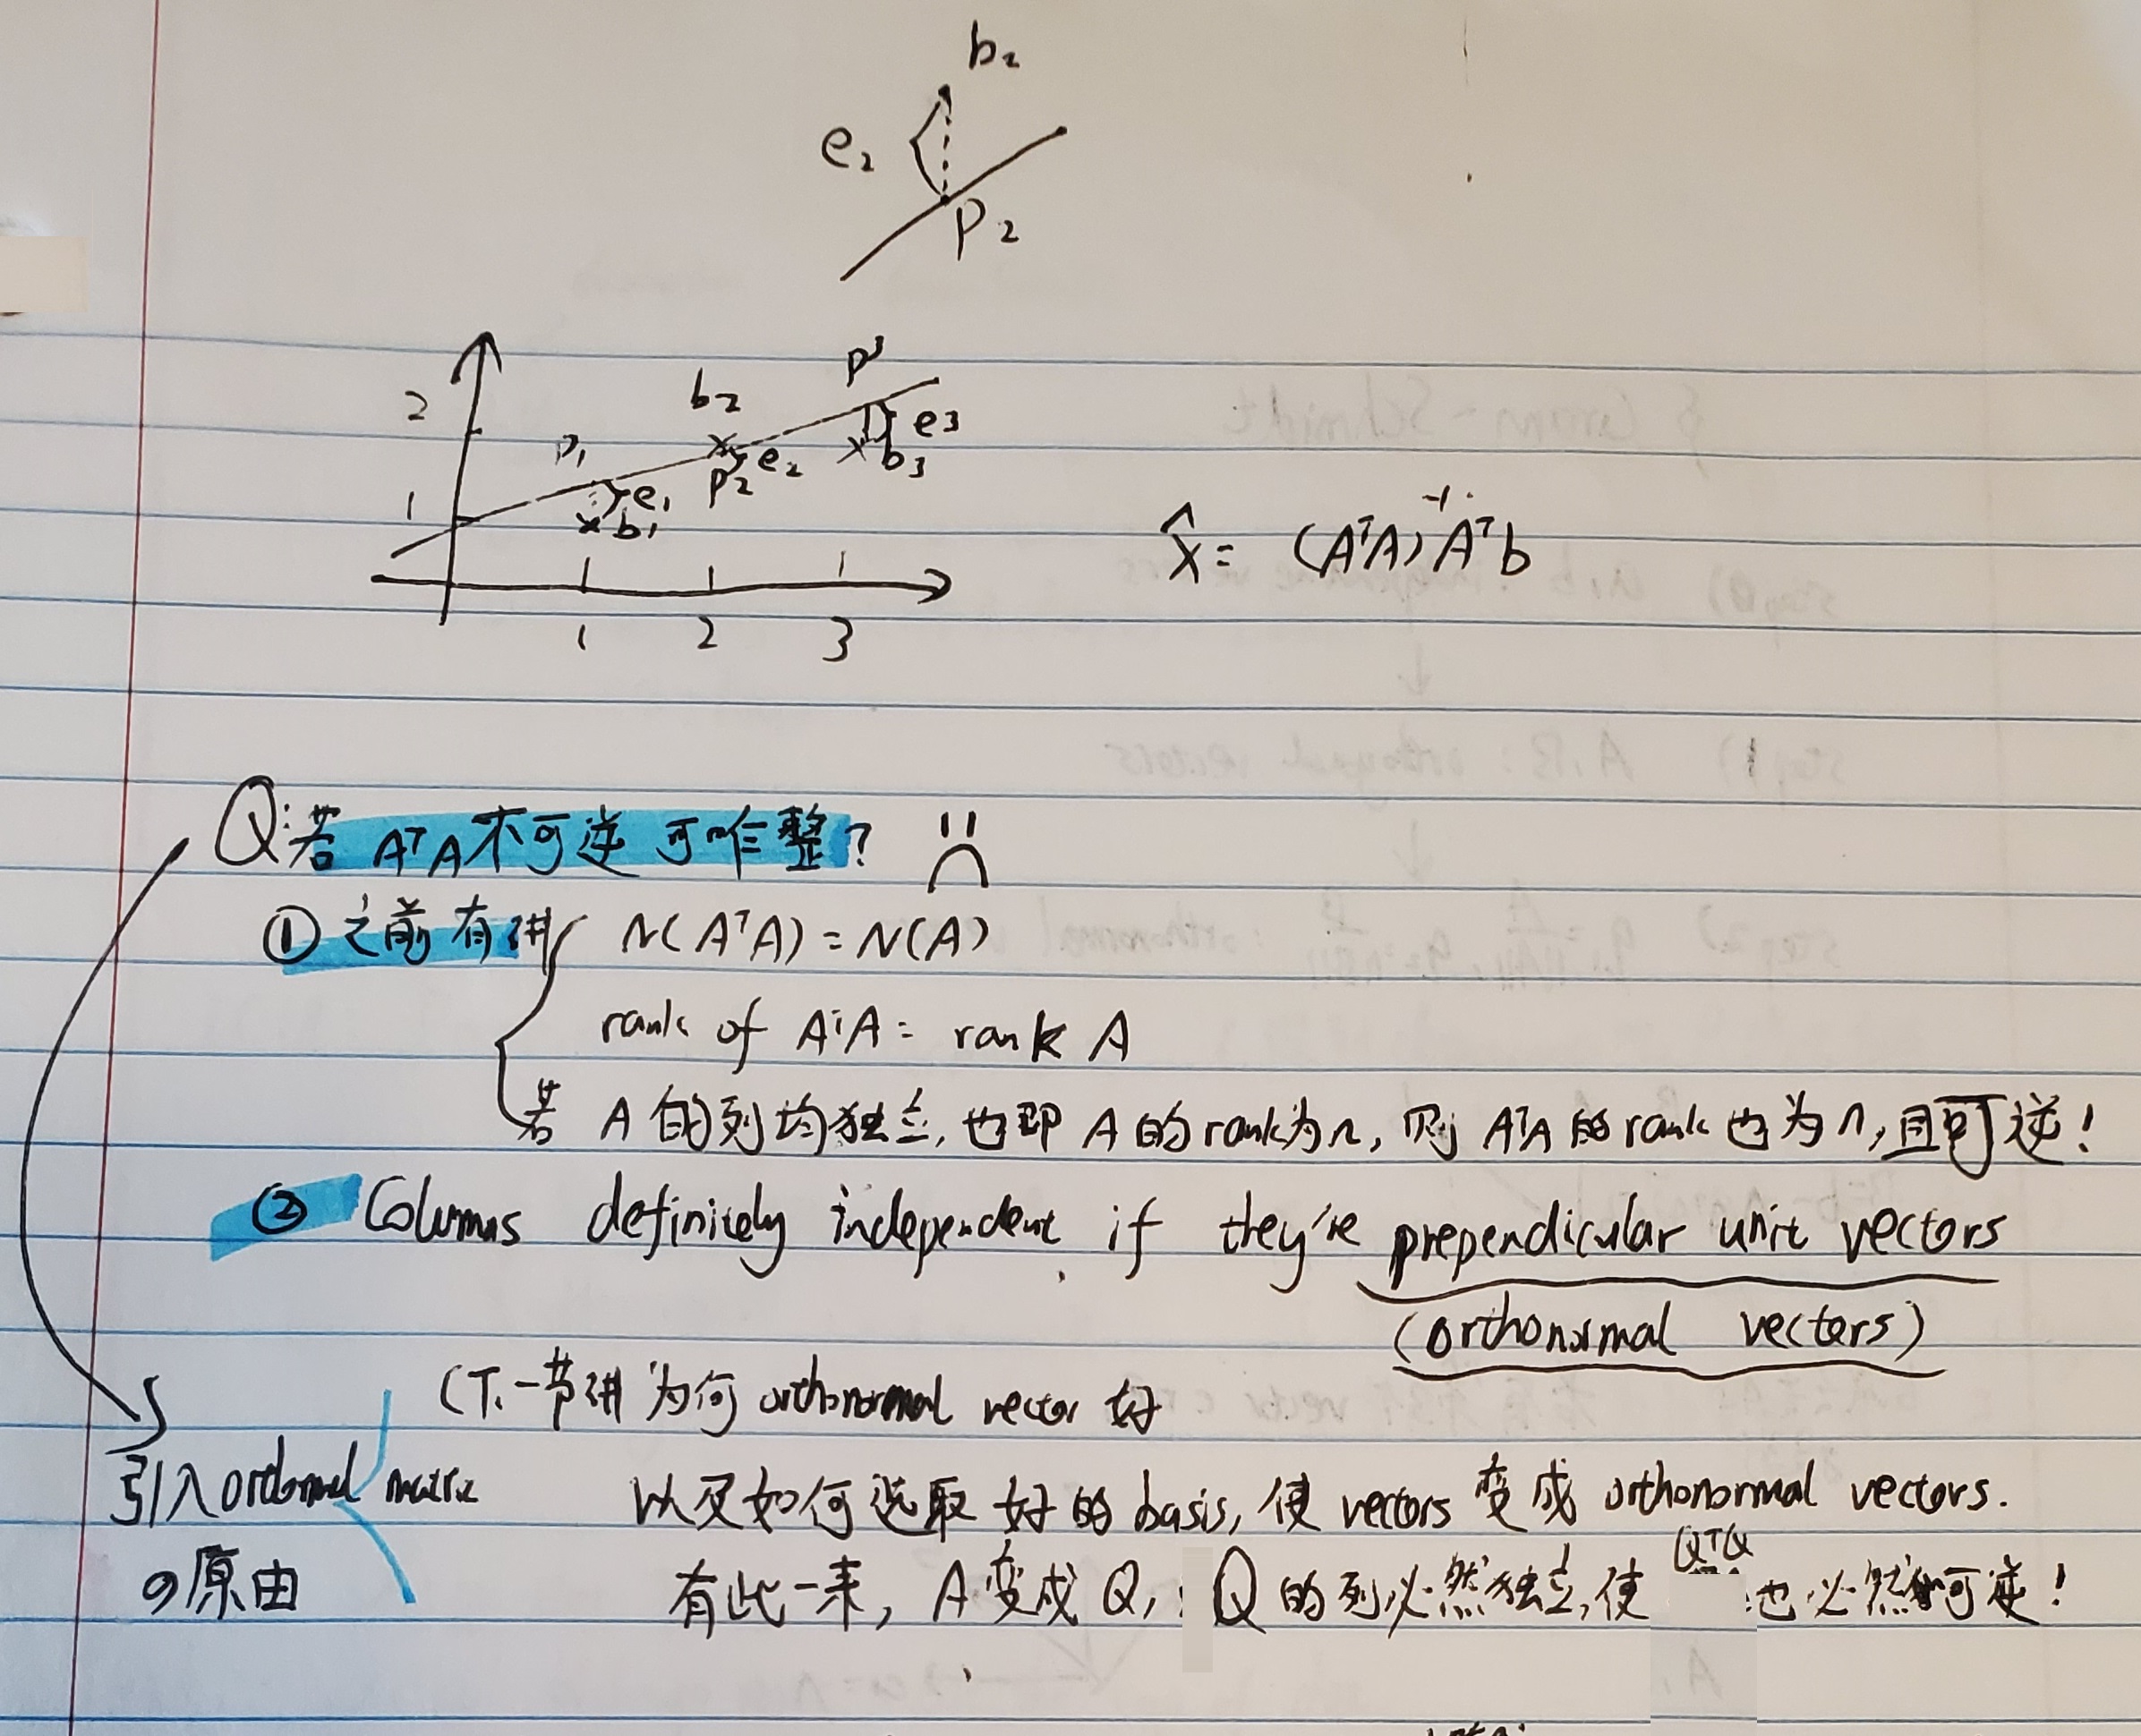 b₂
e₂
P₂
2
1
P₁
b₂
P³
e₁
b₁
P₂
e₂
e₃
b₃
1 2 3
x̂ = (AᵀA)⁻¹Aᵀb
Q: 若 AᵀA不可逆 可咋整?
① 之前有讲 N(AᵀA) = N(A)
rank of AᵀA = rank A
若 A 的列均独立, 也即 A 的 rank为n, 则 AᵀA 的 rank 也为 n, 且可逆!
② Columns definitely independent if they're prependicular unit vectors
(orthonormal vectors)
(下一节讲 为何 orthonormal vector 好
引入 matrix
以及如何选取 好的 basis, 使 vectors 变成 orthonormal vectors.
の原由
有此一来, A 变成 Q, Q 的列必然独立, 使 QᵀQ 也必然可逆!